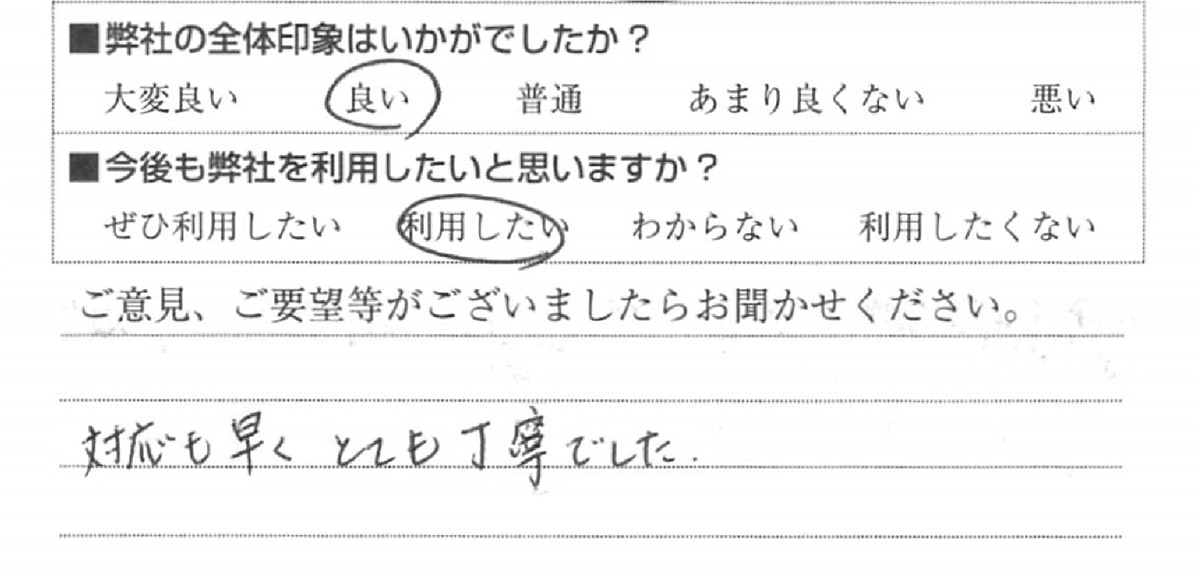 ■弊社の全体印象はいかがでしたか？
大変良い 良い 普通 あまり良くない 悪い
■今後も弊社を利用したいと思いますか？
ぜひ利用したい 利用したい わからない 利用したくない
ご意見、ご要望等がございましたらお聞かせください。
対応も早く とても丁寧でした.